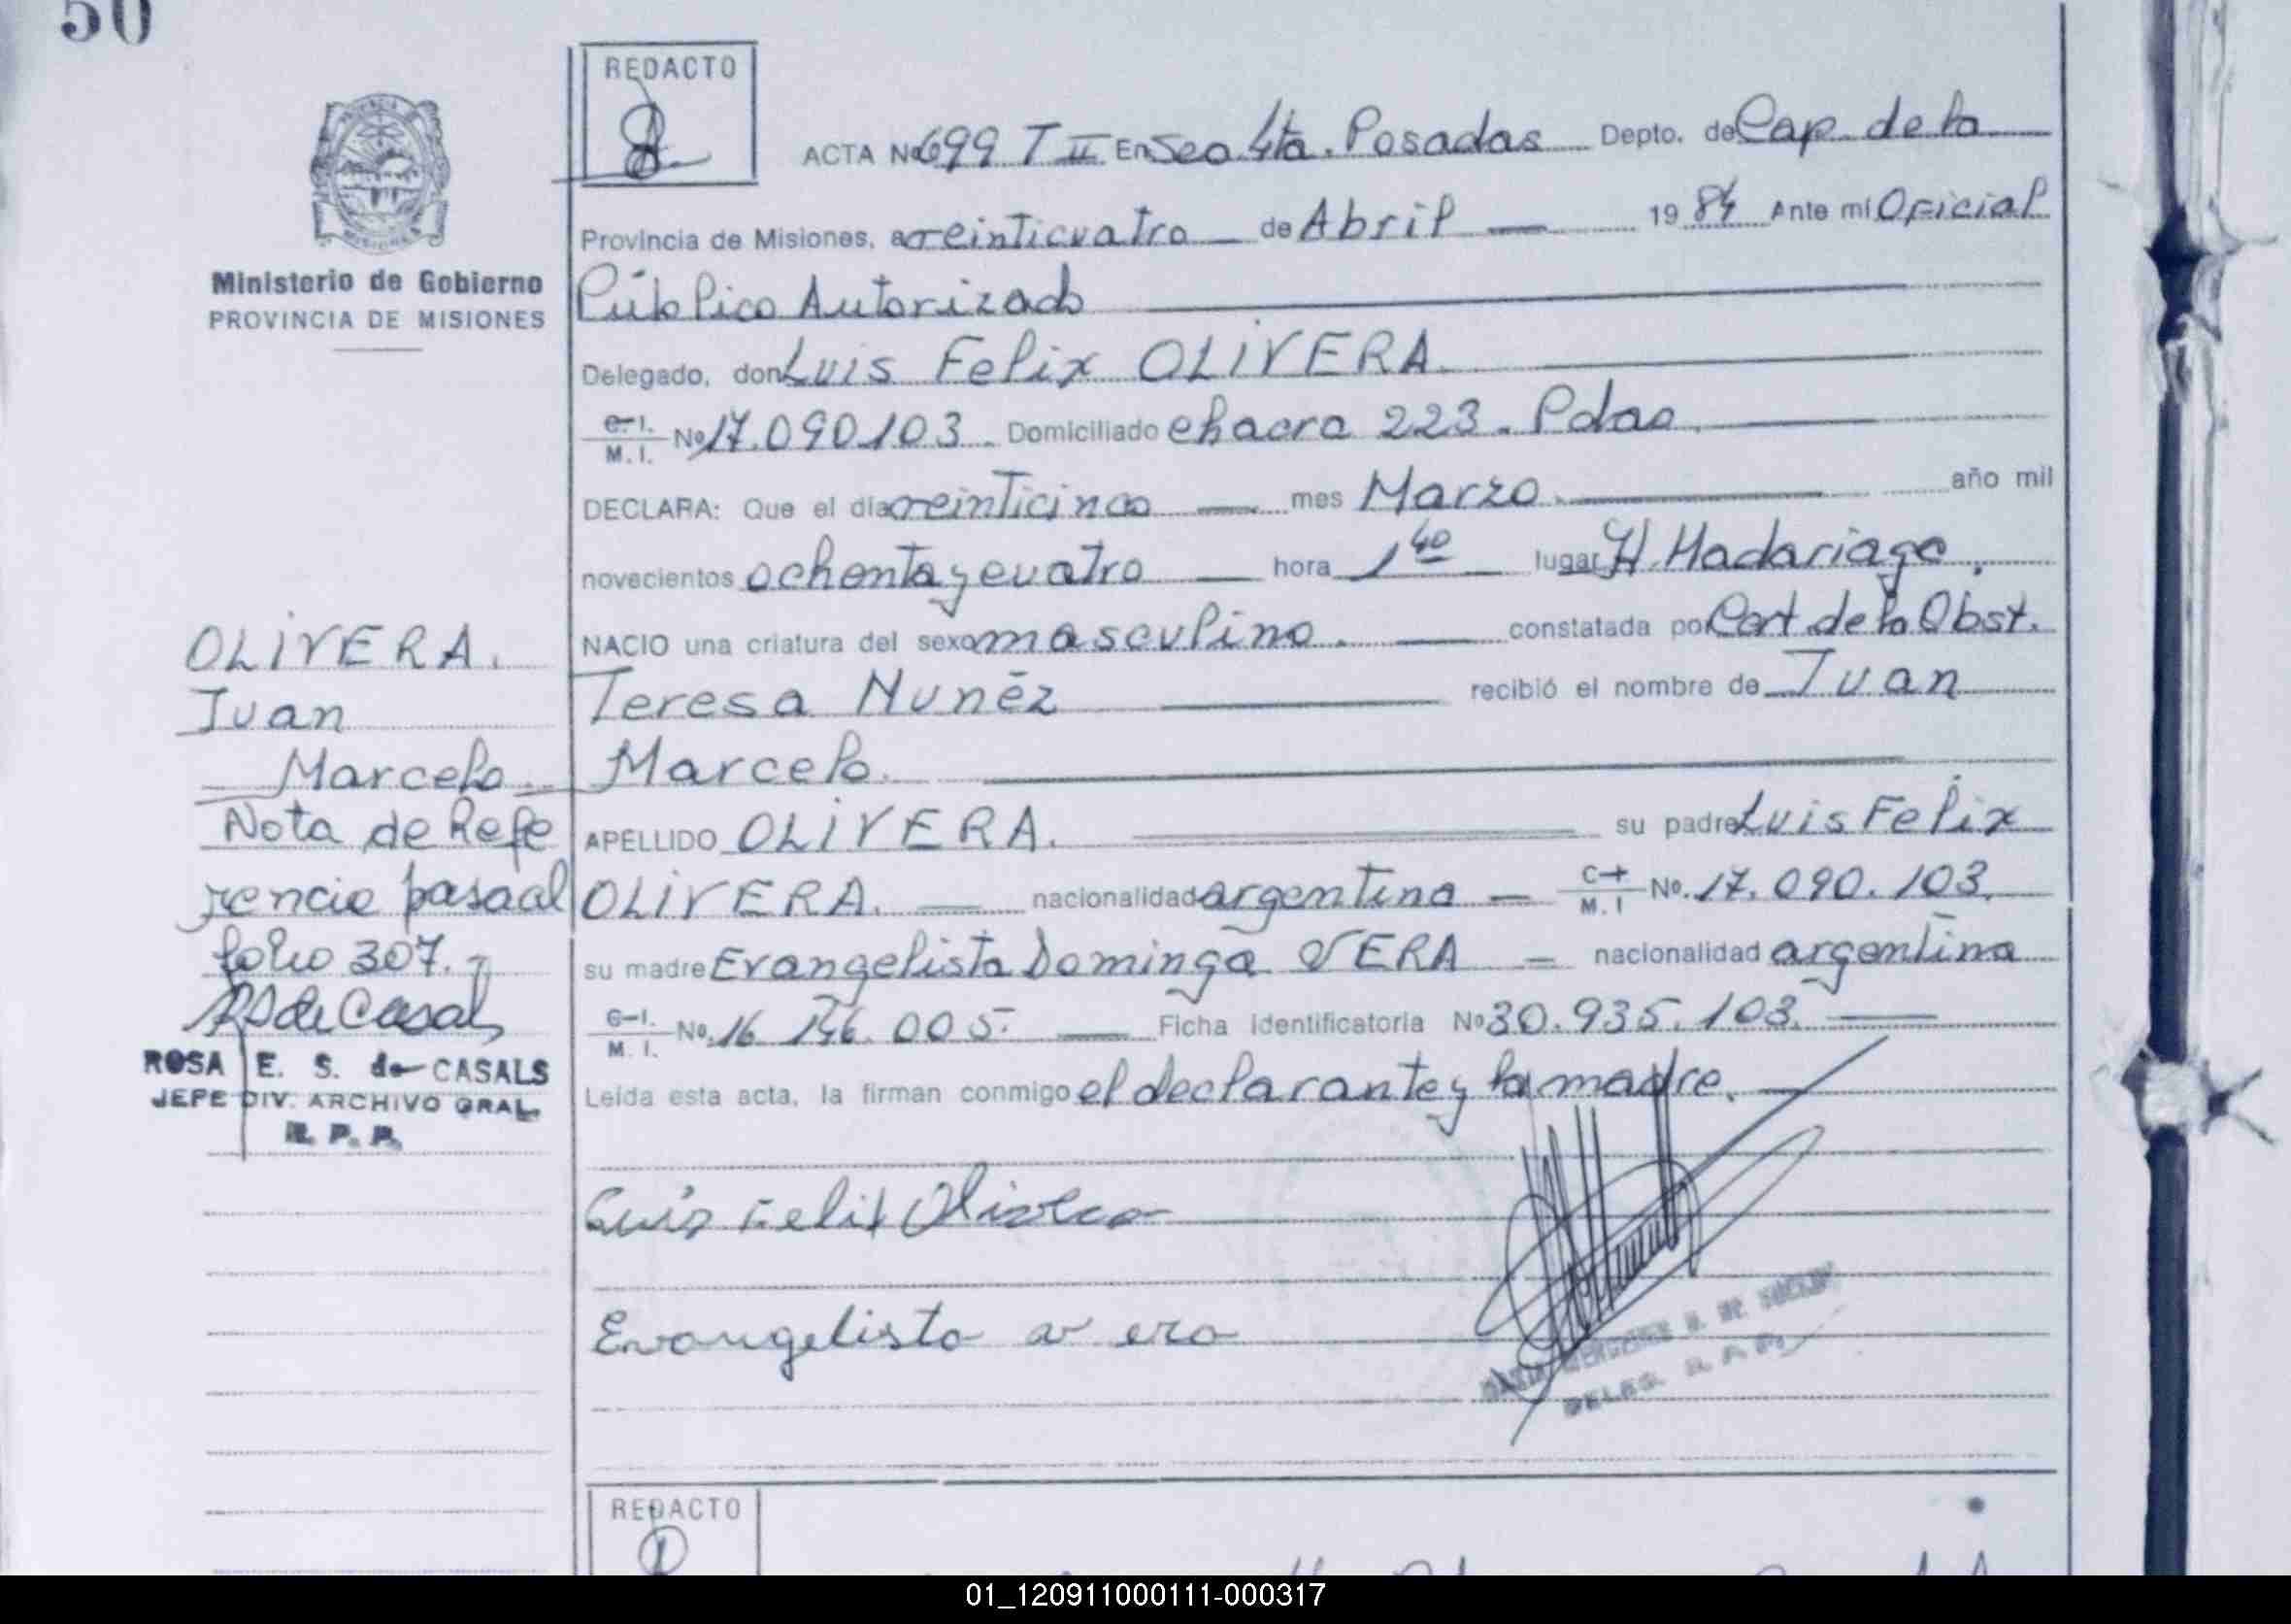 50
REDACTO
ACTA Nº 699 T II En Sec. 4ta. Posadas Depto. de Cap. de la
Provincia de Misiones, a veinticuatro de Abril 1984 Ante mí Oficial
Público Autorizado
Delegado, don Luis Felix OLIVERA.
C. I.
M. I. Nº 17.090.103 Domiciliado chacra 223. Pdas.
DECLARA: Que el día veinticinco mes Marzo. año mil
novecientos ochenta y cuatro hora 1 40 lugar H. Madariaga.
NACIO una criatura del sexo masculino. constatada por Cert. de la Obst.
Teresa Nuñéz recibió el nombre de Juan
Marcelo.
APELLIDO OLIVERA. su padre Luis Felix
OLIVERA. nacionalidad argentina C. I.
M. I Nº. 17.090.103.
su madre Evangelista Dominga VERA nacionalidad argentina
C. I.
M. I. Nº. 16 146.005. Ficha identificatoria Nº 30.935.103.
Leída esta acta, la firman conmigo el declarante y la madre.
Luis Felix Olivera
Evangelista vera
DELEG. R. P. P.
Ministerio de Gobierno
PROVINCIA DE MISIONES
OLIVERA.
Juan
Marcelo.
Nota de Refe
rencia pasa al
folio 307.
RS de Casals
ROSA E. S. de CASALS
JEFE DIV. ARCHIVO GRAL.
R. P. P.
REDACTO
01_120911000111-000317